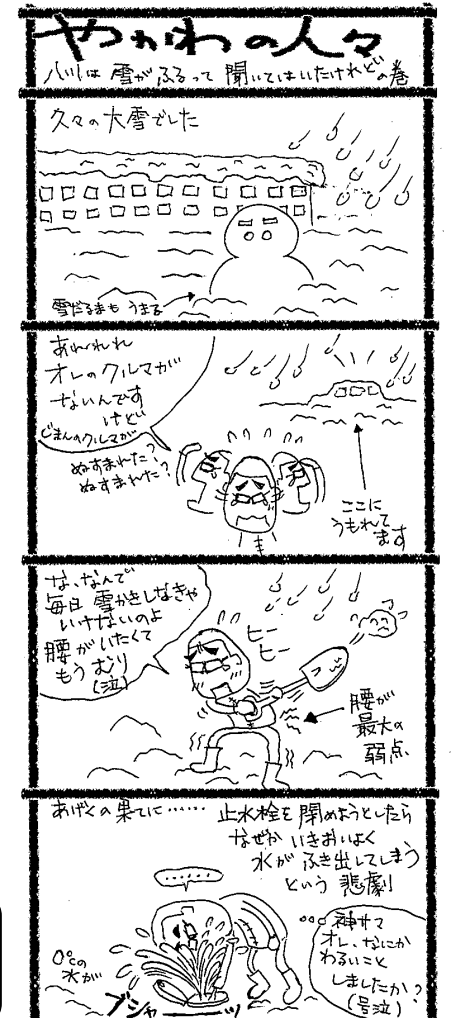 やかわの人々
八川は 雪が ふるって 聞いてはいたけれどの巻
久々の大雪でした
雪だるまも うまる
あれれれ
オレのクルマが
ないんです
けど
じまんのクルマが
ぬすまれた?
ぬすまれた?
ここに
うもれて
ます
な、なんで
毎日 雪かきしなきゃ
いけないのよ
腰がいたくて
もう むり
(泣)
ヒー
ヒー
腰が
最大の
弱点
あげくの果てに……
止水栓を 閉めようとしたら
なぜか いきおいよく
水が ふき出してしまう
という 悲劇
……
0℃の
水が
ブシャーーッ
神サマ
オレ、なにか
わるいこと
しましたか?
(号泣)